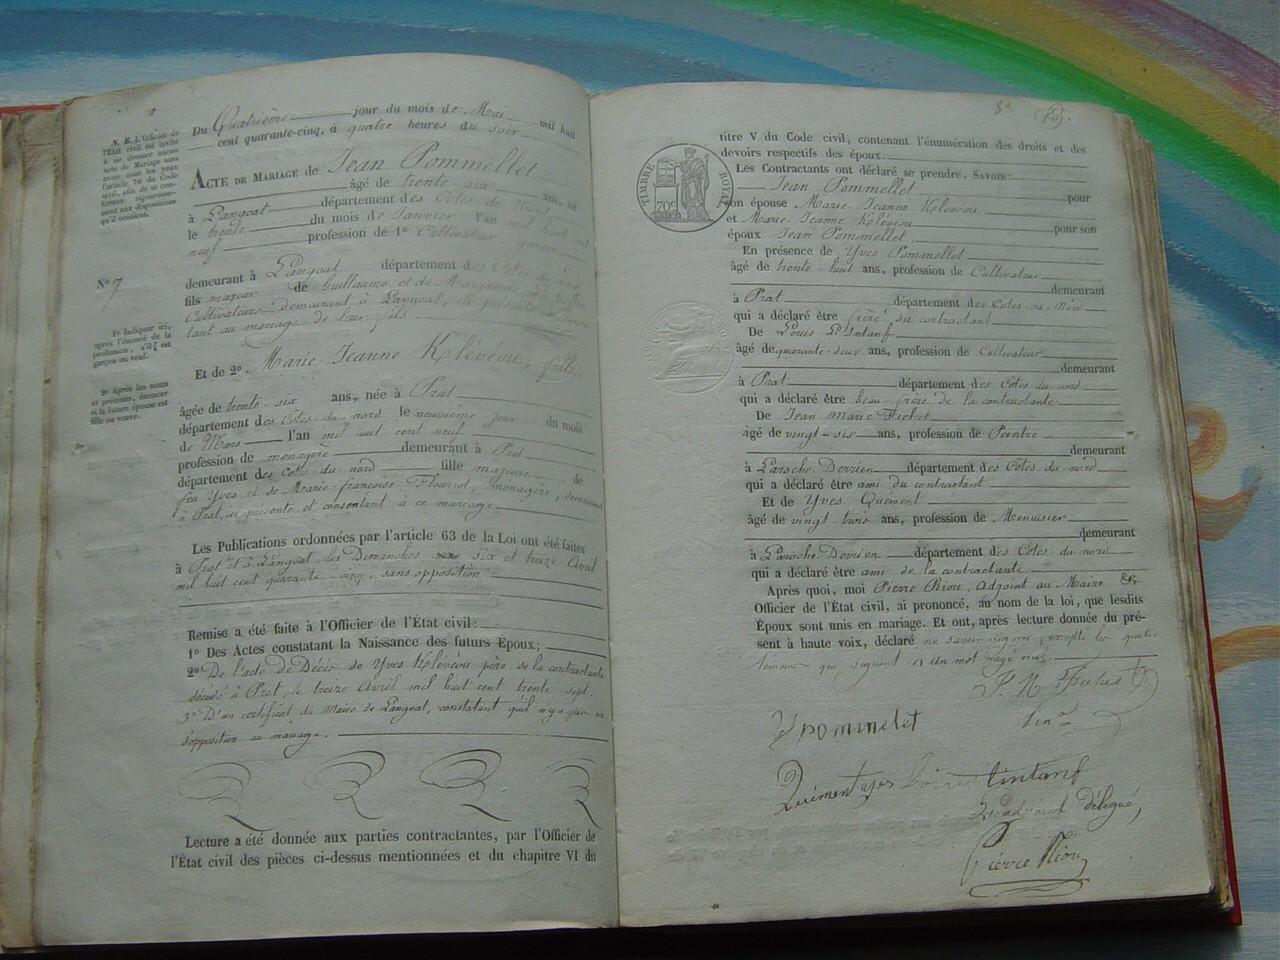 N. B. L'Officier de
l'État civil est invité
à ne dresser aucun
acte de Mariage sans
avoir sous les yeux
l'article 76 du Code
civil, afin de se con-
former rigoureuse-
ment aux dispositions
qu'il contient.
Du Quatrième jour du mois de Mai mil huit
cent quarante-cinq, à quatre heures du soir
ACTE DE MARIAGE de Jean Pommellet
âgé de trente-six ans, né
à Langoat département des Côtes du Nord
le trente du mois de Janvier l'an mil huit cent
neuf profession de 1° Cultivateur, garçon
N° 7
demeurant à Langoat département des Côtes du nord
fils majeur de Guillaume et de Marguerite
Cultivateurs demeurant à Langoat, ici présents et
tant au mariage de leur fils.
1° Indiquer ici,
après l'énoncé de la
profession, s'il est
garçon ou veuf.
Et de 2° Marie Jeanne Kelévéou, fille
2° Après les noms
et prénoms, énoncer
si la future épouse est
fille ou veuve.
âgée de trente-six ans, née à Prat
département des Côtes du nord le neuvième jour du mois
de Mars l'an mil huit cent neuf
profession de menagère demeurant à Prat
département des Côtes du nord fille majeure de
feu Yves et de Marie-françoise Flouriot, menagère, demeurant
à Prat, ici présente et consentant à ce mariage
Les Publications ordonnées par l'article 63 de la Loi ont été faites
à Prat et à Langoat les Dimanches six et treize Avril
mil huit cent quarante-cinq, sans opposition
Remise a été faite à l'Officier de l'État civil:
1° Des Actes constatant la Naissance des futurs Époux;
2° De l'acte de Décès de Yves Kelévéou père de la contractante
décédé à Prat, le treize Avril mil huit cent trente-sept.
3° D'un certificat du Maire de Langoat, constatant qu'il n'y a pas eu
d'opposition au mariage.
Lecture a été donnée aux parties contractantes, par l'Officier de
l'État civil des pièces ci-dessus mentionnées et du chapitre VI du
8e
titre V du Code civil, contenant l'énumération des droits et des
devoirs respectifs des époux.
TIMBRE ROYAL
70c
Les Contractants ont déclaré se prendre, SAVOIR:
Jean Pommellet pour
son épouse Marie Jeanne Kelévéou
et Marie Jeanne Kelévéou pour son
époux Jean Pommellet
En présence de Yves Pommellet
âgé de trente-huit ans, profession de Cultivateur
demeurant
à Prat département des Côtes du Nord
qui a déclaré être frère du contractant
De Louis L'Intanf
âgé de quarante-deux ans, profession de Cultivateur
demeurant
à Prat département des Côtes du nord
qui a déclaré être beau frère de la contractante
De Jean Marie Fichet
âgé de vingt-six ans, profession de Peintre
demeurant
à Laroche Derrien département des Côtes du nord
qui a déclaré être ami du contractant
Et de Yves Quément
âgé de vingt trois ans, profession de Menuisier
demeurant
à Laroche Derrien département des Côtes du nord
qui a déclaré être ami de la contractante
Après quoi, moi Pierre Riou, adjoint au Maire
Officier de l'État civil, ai prononcé, au nom de la loi, que lesdits
Époux sont unis en mariage. Et ont, après lecture donnée du pré-
sent à haute voix, déclaré ne savoir signer, excepté les quatre
temoins qui signent. Un mot rayé nul
Ypommelet
Quément yves Louis Lintanf
L'adjoint délégué,
Pierre Riou